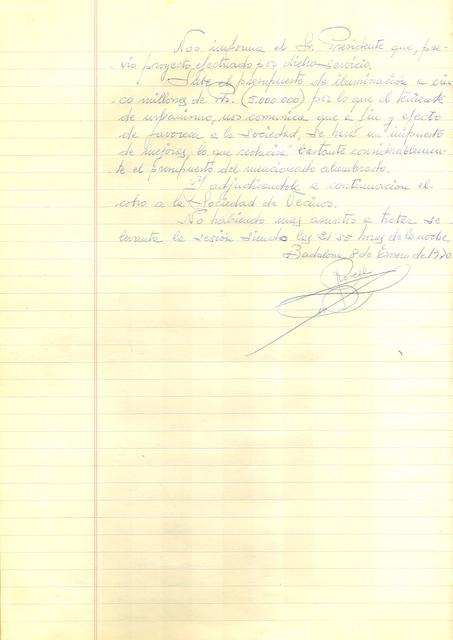 Nos informa el Sr. Presidente que, pre-
vio proyecto efectuado por dicho servicio.
Sube el presupuesto de iluminación a cin-
co millones de Pts. (5.000.000) por lo que el teniente
de urbanismo, nos comunica que a fin y efecto
de favorecer a la Sociedad, se hará un impuesto
de mejoras, lo que reducirá bastante considerablemen-
te el presupuesto del mencionado alumbrado.
Y adjudicandole a continuación el
cobro a la Sociedad de Vecinos.
No habiendo mas asuntos a tratar se
levanta la sesión siendo las 21'55 horas de la noche
Badalona 8 de Enero de 1970